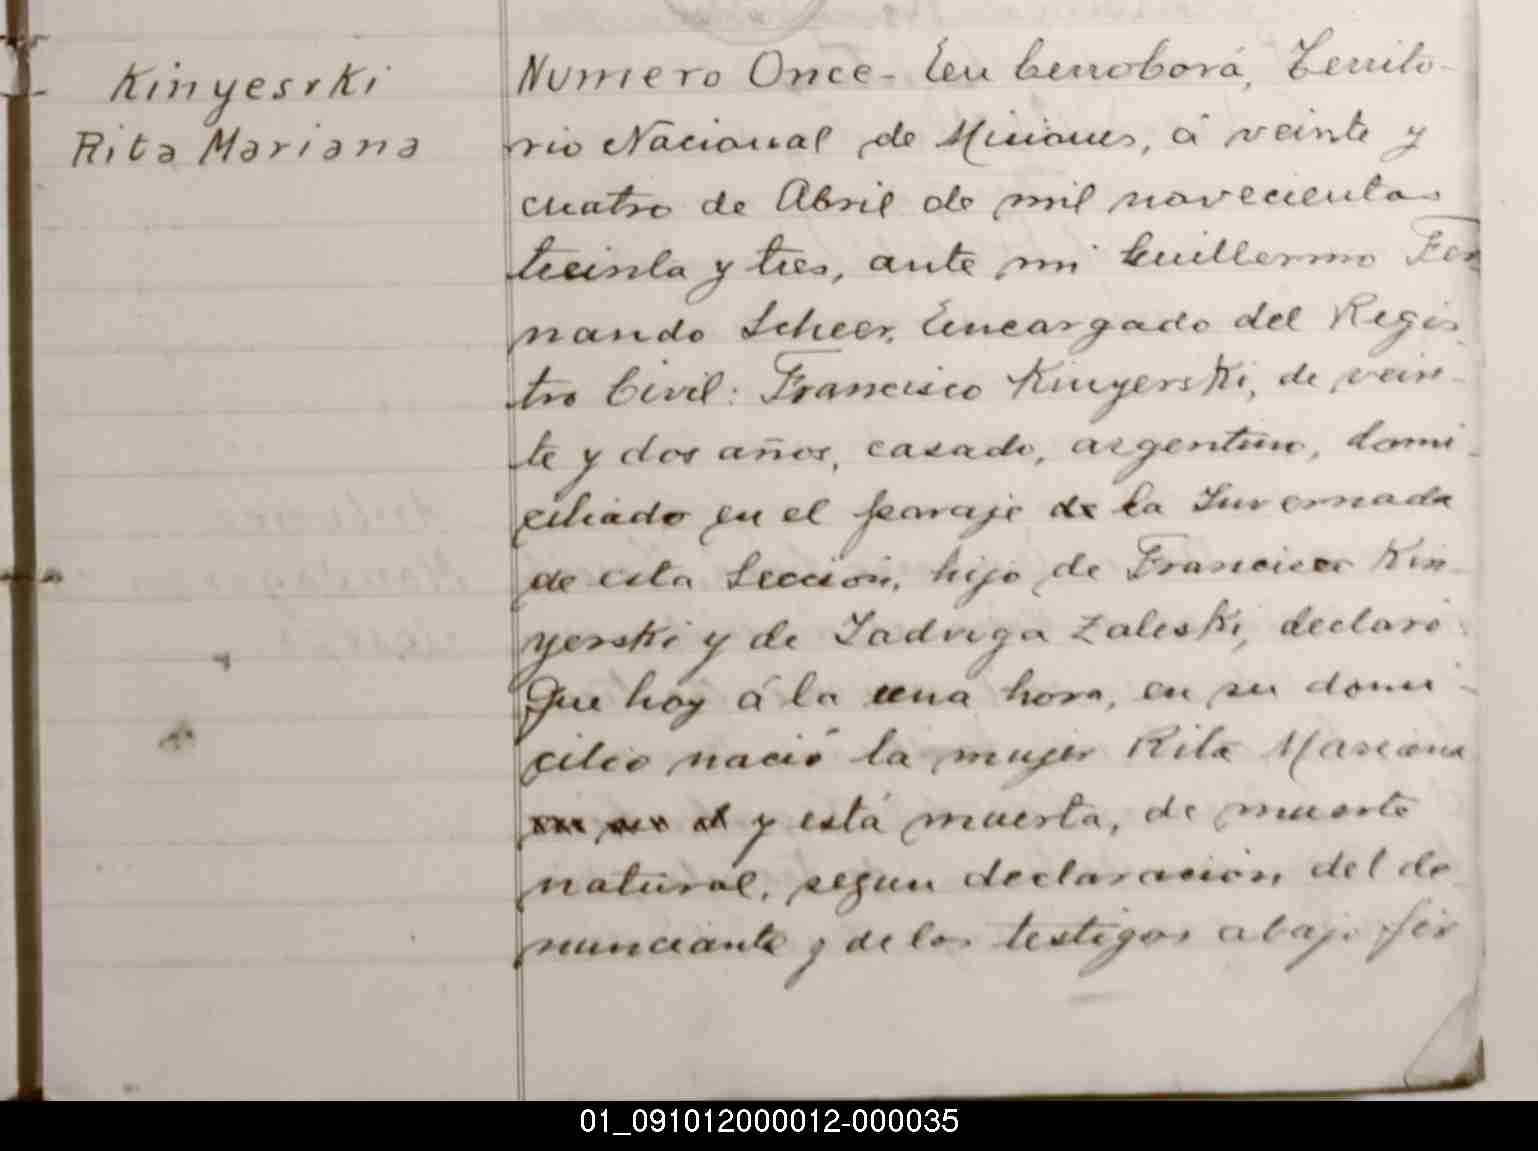 Kinyerski
Rita Mariana
Numero Once - En Cerro Corá, Territo-
rio Nacional de Misiones, á veinte y
cuatro de Abril de mil novecientos
treinta y tres, ante mi Guillermo Fer
nando Scheer, Encargado del Regis-
tro Civil: Francisco Kinyerski, de vein-
te y dos años, casado, argentino, domi-
ciliado en el paraje de la Invernada
de esta Sección, hijo de Francisco Kin-
yerski y de Jadviga Zaleski, declaró:
Que hoy á la una hora, en su domi-
cilio nació la mujer Rita Mariana
y está muerta, de muerte
natural, segun declaracion, del de
nunciante y de los testigos abajo fir
01_091012000012-000035